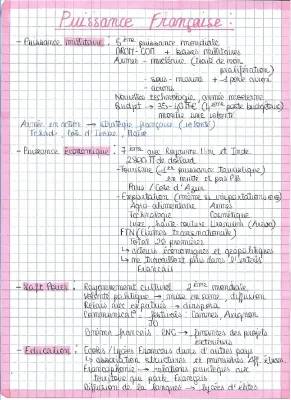 Puissance Française :
- Puissance militaire : 5ème puissance mondiale
DROM-COM + bases militaires
Arme - nucléaire (traité de non prolifération)
- sous-marins + 1 porte avion
- avions
Nouvelles technologie, armée moderne
Budget → 35-40M€ (4ème poste budgétaire)
montre une volonté
Armée en action → stratégie française (volonté)
Tchad, Côte d'Ivoire, Mali
- Puissance économique : 7ème avec Royaume Uni et Inde
2800 M de dollard
- Tourisme (1er puissance touristique)
en visite et pas PIB
Paris / Côte d'Azur
- Exportation (même si importations)
Agro alimentaire Armes
Technologie Cosmétique
Luxe, haute couture
FTN (Firmes transnationale)
Total 20 premières
↳ acteurs économiques et géopolitiques
↳ ne travaillent plus dans l'intérêt
Français
- Soft Power : Rayonnement culturel 2ème mondiale
Volonté politique → mise en scène, diffusion
Relais aux expatriés → diaspora
Communicat° : festivals : Cannes, Avignon
JO
Cinéma français CNC → financer des projets
extérieurs
- Education : Écoles / lycées Français dans d'autres pays
↳ association structures et monitoires
Francophonie → relations privilégiés aux
territoires qui parle Français
Diffusion de la langue → lycées d'élites